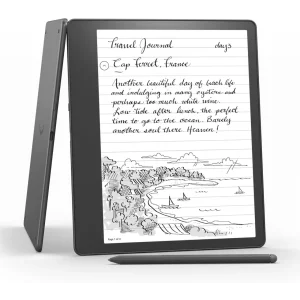 Travel Journal days
Cap Ferret, France
Another beautiful day of beach life
and indulging in many oysters and
perhaps too much white wine.
Low tide after lunch, the perfect
time to go to the ocean. Barely
another soul there. Heaven!